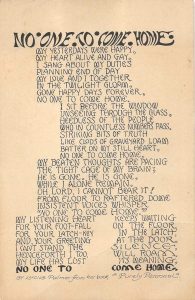 NO ONE TO COME HOME
MY YESTERDAYS WERE HAPPY,
MY HEART ALIVE AND GAY.
I SANG ABOUT MY DUTIES
PLANNING END OF DAY
MY LOVE AND I TOGETHER
IN THE TWILIGHT GLOAM.
GONE HAPPY DAYS FOREVER,
NO ONE TO COME HOME.
I SIT BEFORE THE WINDOW
UNSEEING THROUGH THE GLASS,
HEEDLESS OF THE PEOPLE
WHO IN COUNTLESS NUMBERS PASS,
STRIKING BITS OF TRUTH
LIKE CLODS OF GRAVEYARD LOAM
BATTER ON MY STILL HEART,
NO ONE TO COME HOME.
MY BEATEN THOUGHTS ARE PACING
THE TIGHT CAGE OF MY BRAIN;
HE IS GONE, HE IS GONE,
WHILE I ALONE REMAIN.
OH LORD I CANNOT BEAR IT!
FROM FLOOR TO RAFTERED DOME
INSISTENT VOICES WHISPER
"NO ONE TO COME HOME."
MY LISTENING HEART VOICES WAITING
FOR YOUR FOOT-FALL ON THE FLOOR,
FOR YOUR LATCH-KEY IN THE LATCH
AND YOUR GREETING AT THE DOOR,
I CAN'T STAND THE SILENCE.
HENCEFORTH I TOO WILL ROAM.
MY LIFE HAS LOST TODAY ITS MEANING
NO ONE TO COME HOME.